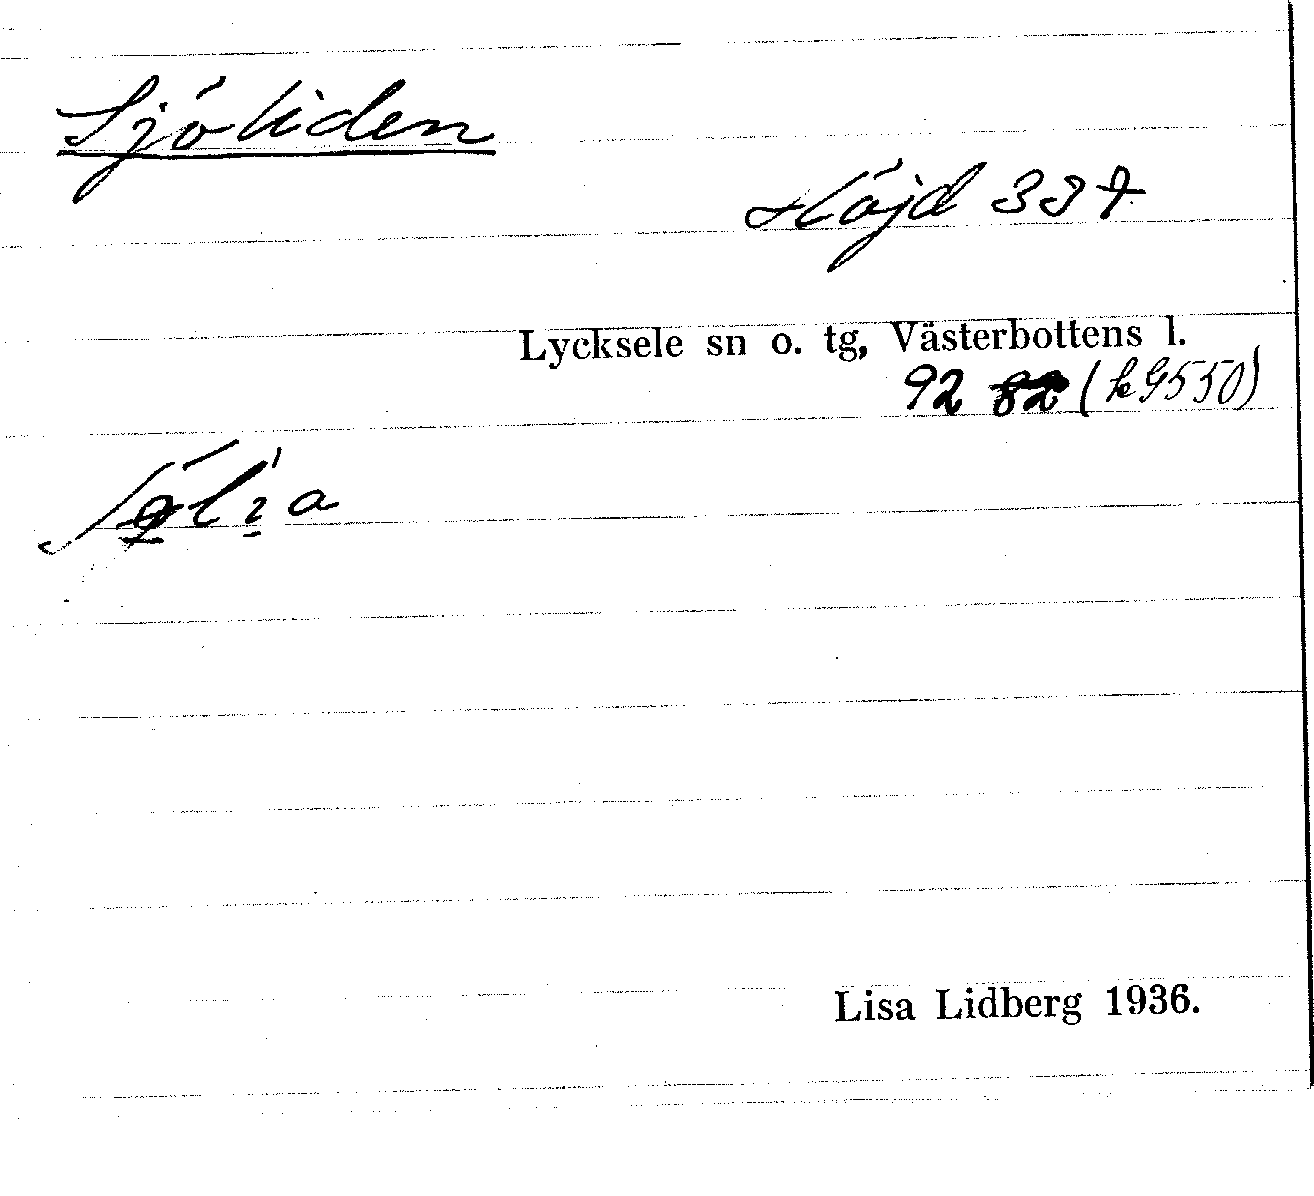 Sjöliden
Höjd 337
Lycksele sn o. tg, Västerbottens l.
92 82 (k 9550)
Lisa Lidberg 1936.